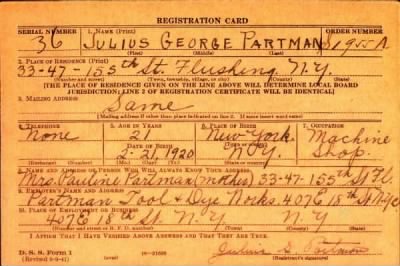 REGISTRATION CARD
SERIAL NUMBER 1. NAME (Print) ORDER NUMBER
36 JULIUS GEORGE PARTMAN
(First) (Middle) (Last)
2. PLACE OF RESIDENCE (Print)
33-47-155th St. Flushing N.Y.
(Number and street) (Town, township, village, or city) (County) (State)
[THE PLACE OF RESIDENCE GIVEN ON THE LINE ABOVE WILL DETERMINE LOCAL BOARD
JURISDICTION; LINE 2 OF REGISTRATION CERTIFICATE WILL BE IDENTICAL]
3. MAILING ADDRESS
Same
[Mailing address if other than place indicated on line 2. If same insert word same]
4. TELEPHONE 5. AGE IN YEARS 6. PLACE OF BIRTH 7. OCCUPATION
None 21 New York Machine
DATE OF BIRTH
2-21-1920 N.Y. Shop.
(Exchange) (Number) (Mo.) (Day) (Yr.) (State or country)
8. NAME AND ADDRESS OF PERSON WHO WILL ALWAYS KNOW YOUR ADDRESS
Mrs. Pauline Partman (mother) 33-47-155th St. Fl
9. EMPLOYER'S NAME AND ADDRESS
Partman Tool & Dye Works. 407 E 18th St N.Y.C
10. PLACE OF EMPLOYMENT OR BUSINESS
407 E 18th St. N.Y. N.Y.
(Number and street or R. F. D. number) (Town) (County) (State)
I AFFIRM THAT I HAVE VERIFIED ABOVE ANSWERS AND THAT THEY ARE TRUE.
D. S. S. Form 1
(Revised 6-9-41) Julius G. Partman